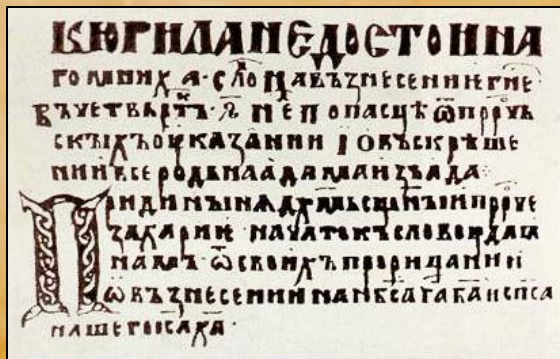 КЮРИЛА НЕДОСТОИНА
ГО МНИХА· СЛО НА ВЪЗНЕСЕНИЕ ГНЕ·
ВЪ ЧЕТВЬРТ· НЕ ПО ПАСЦѢ Ѿ ПРРЧЬ
СКЫХЪ ОУКАЗАНИИ I О ВЪСКРѢШЕ
НИИ ВСЕРОДЬНА АДАМА ИЗЪ АДА·
ПРИДИ НЫНѦ ДХМЬ СЩНЫИ ПРРЧЕ
ЗАХАРИЕ НАЧАТОКЪ СЛОВОУ ДАѦ
НАМЪ Ѿ СВОИХЪ ПРОРИЦАНИИ
Ѡ ВЪЗНЕСЕНИИ НА НБСА ГА БА И СПСА
НАШЕГО ИСА ХА·